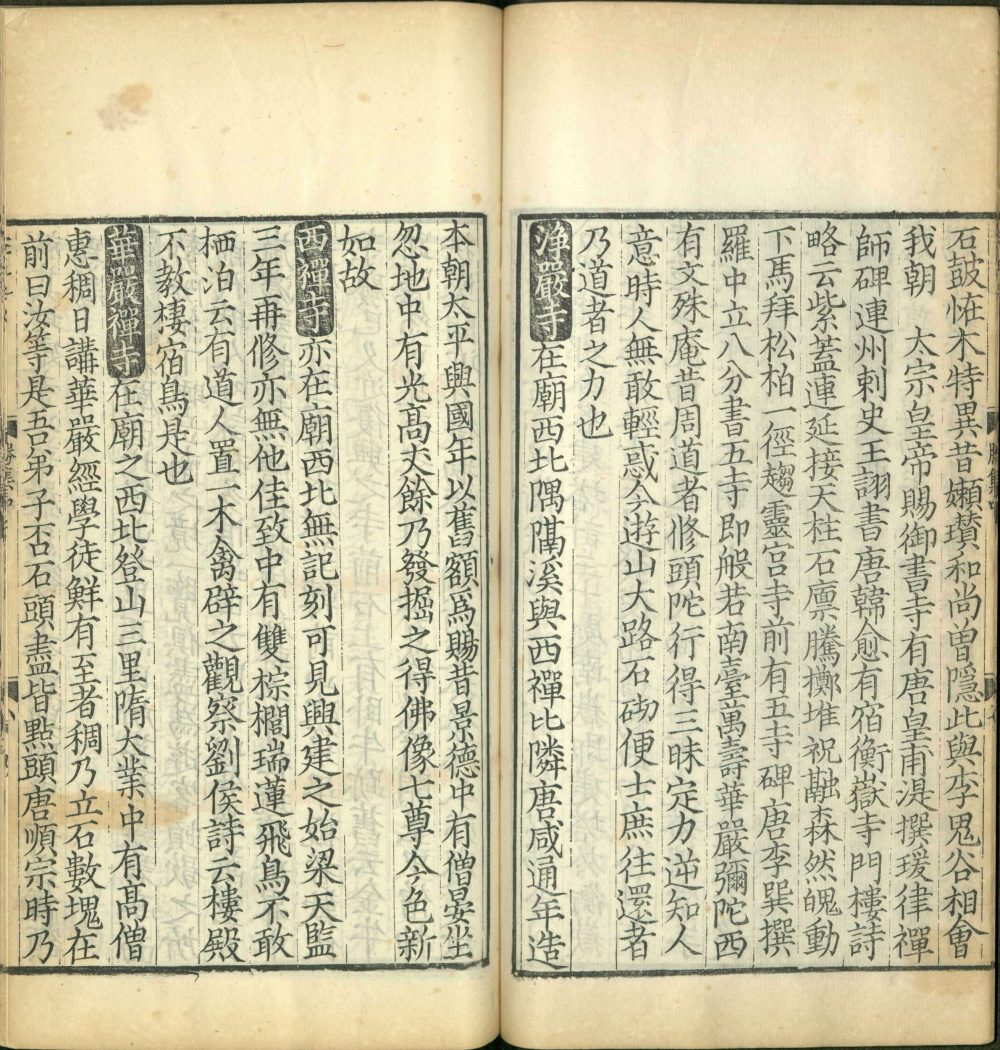 石鼓恠木特異昔嬾瓚和尚曾隱此與李鬼谷相會
我朝　太宗皇帝賜御書寺有唐皇甫湜撰瑗律禪
師碑連州刺史王詡書唐韓愈有宿衡嶽寺門樓詩
略云紫蓋連延接天柱石廩騰擲堆祝融森然魄動
下馬拜松柏一徑趨靈宮寺前有五寺碑唐李巽撰
羅中立八分書五寺即般若南臺萬壽華嚴彌陀西
有文殊庵昔周道者修頭陀行得三昧定力逆知人
意時人無敢輕惑今遊山大路石砌便士庶往還者
乃道者之力也
淨嚴寺在廟西北隅隔溪與西禪比隣唐咸通年造
本朝太平興國年以舊額爲賜昔景德中有僧晏坐
忽地中有光高丈餘乃發掘之得佛像七尊今色新
如故
西禪寺亦在廟西北無記刻可見興建之始梁天監
三年再修亦無他佳致中有雙棕櫚瑞蓮飛鳥不敢
栖泊云有道人置一木禽辟之觀察劉侯詩云樓殿
不教棲宿鳥是也
華嚴禪寺在廟之西北登山三里隋大業中有高僧
惠稠日講華嚴經學徒鮮有至者稠乃立石數塊在
前曰汝等是吾弟子否石頭盡皆點頭唐順宗時乃